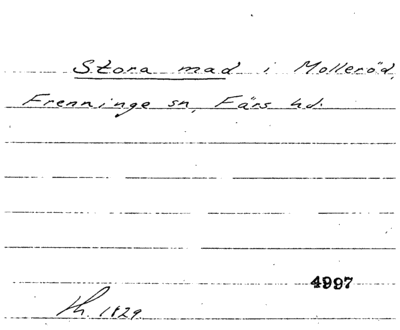 Stora mad i Molleröd,
Frenninge sn, Färs hd.
4997
Lh. 1829